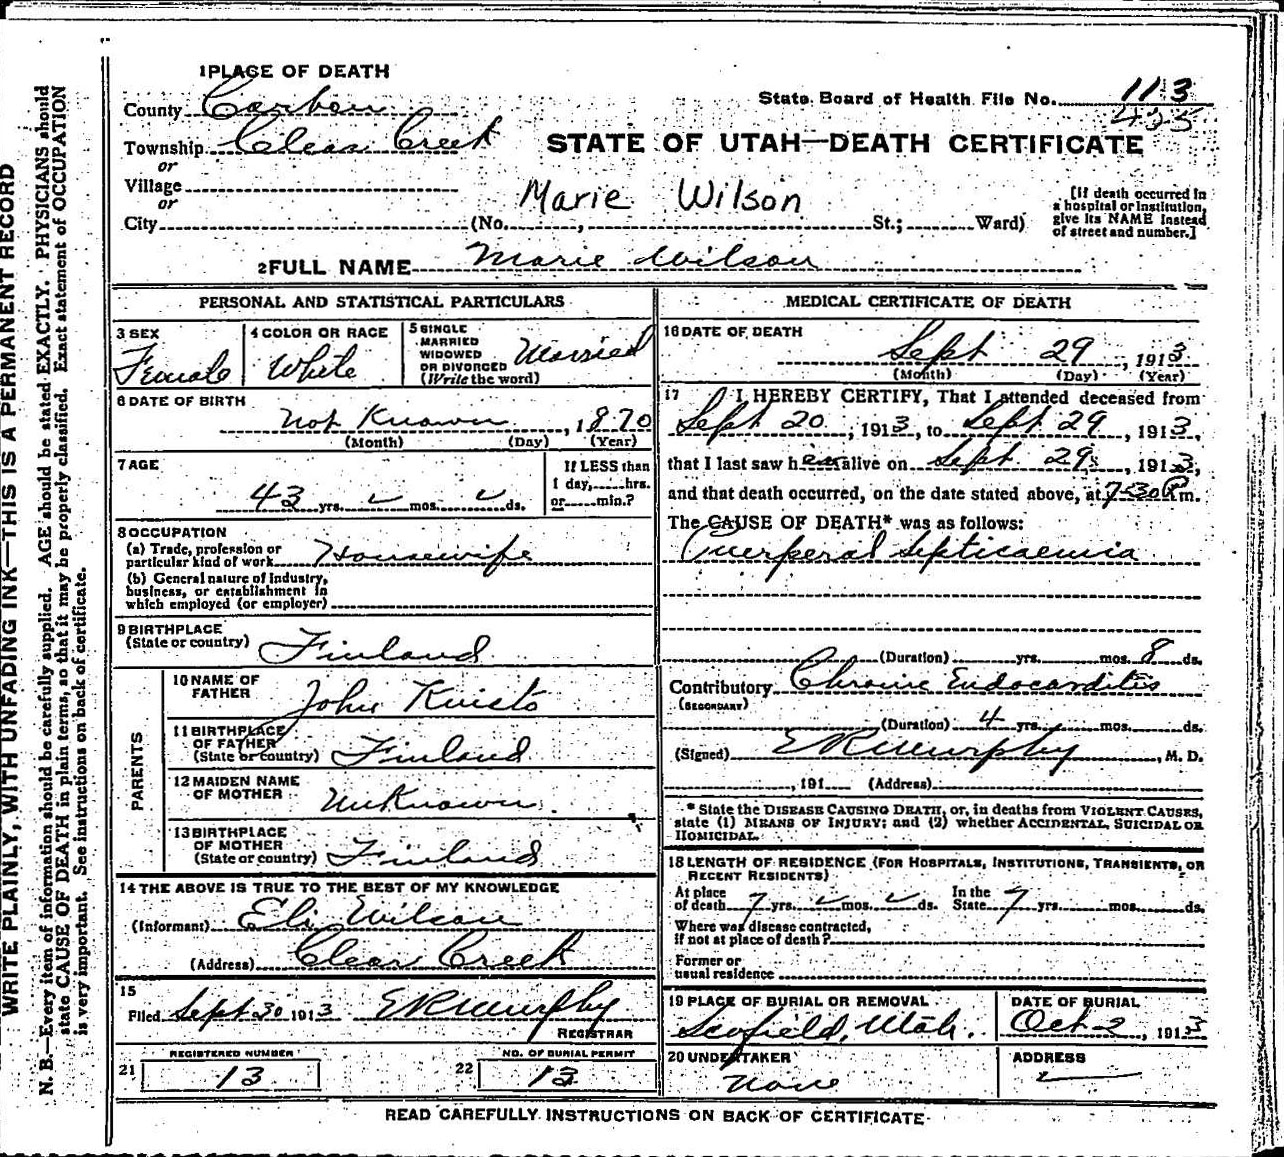 WRITE PLAINLY, WITH UNFADING INK—THIS IS A PERMANENT RECORD
N. B.—Every item of information should be carefully supplied. AGE should be stated EXACTLY. PHYSICIANS should
state CAUSE OF DEATH in plain terms, so that it may be properly classified. Exact statement of OCCUPATION
is very important. See instructions on back of certificate.
1 PLACE OF DEATH
County Carbon
State Board of Health File No. 113
425
Township Clear Creek
STATE OF UTAH—DEATH CERTIFICATE
or
Village
or
Marie Wilson
[If death occurred in
a hospital or institution,
give its NAME instead
of street and number.]
City (No. , St.; Ward)
2 FULL NAME Marie Wilson
PERSONAL AND STATISTICAL PARTICULARS
3 SEX
Female
4 COLOR OR RACE
White
5 SINGLE
MARRIED
WIDOWED
OR DIVORCED
(Write the word)
Married
6 DATE OF BIRTH
Not Known , 1870
(Month) (Day) (Year)
7 AGE
43 yrs. mos. ds.
If LESS than
1 day, hrs.
or min.?
8 OCCUPATION
(a) Trade, profession or
particular kind of work Housewife
(b) General nature of Industry,
business, or establishment in
which employed (or employer)
9 BIRTHPLACE
(State or country) Finland
PARENTS
10 NAME OF
FATHER John Kuisto
11 BIRTHPLACE
OF FATHER
(State or country) Finland
12 MAIDEN NAME
OF MOTHER Unknown
13 BIRTHPLACE
OF MOTHER
(State or country) Finland
14 THE ABOVE IS TRUE TO THE BEST OF MY KNOWLEDGE
(Informant) Eli Wilson
(Address) Clear Creek
15
Filed Sept 30 1913 ER Murphy
REGISTRAR
REGISTERED NUMBER
21 13
NO. OF BURIAL PERMIT
22 13
MEDICAL CERTIFICATE OF DEATH
16 DATE OF DEATH
Sept 29 , 1913
(Month) (Day) (Year)
17 I HEREBY CERTIFY, That I attended deceased from
Sept 20 , 1913, to Sept 29 , 1913,
that I last saw her alive on Sept 29 , 1913,
and that death occurred, on the date stated above, at 7-30 P m.
The CAUSE OF DEATH* was as follows:
Puerperal Septicaemia
(Duration) yrs. mos. 8 ds.
Contributory Chronic Endocarditis
(SECONDARY)
(Duration) 4 yrs. mos. ds.
(Signed) ER Murphy , M. D.
, 191 (Address)
* State the DISEASE CAUSING DEATH, or, in deaths from VIOLENT CAUSES,
state (1) MEANS OF INJURY; and (2) whether ACCIDENTAL, SUICIDAL OR
HOMICIDAL.
18 LENGTH OF RESIDENCE (FOR HOSPITALS, INSTITUTIONS, TRANSIENTS, OR
RECENT RESIDENTS)
At place
of death 7 yrs. mos. ds.
In the
State 7 yrs. mos. ds.
Where was disease contracted,
if not at place of death?
Former or
usual residence
19 PLACE OF BURIAL OR REMOVAL
Scofield, Utah.
DATE OF BURIAL
Oct 2 , 1913
20 UNDERTAKER
None
ADDRESS
READ CAREFULLY INSTRUCTIONS ON BACK OF CERTIFICATE